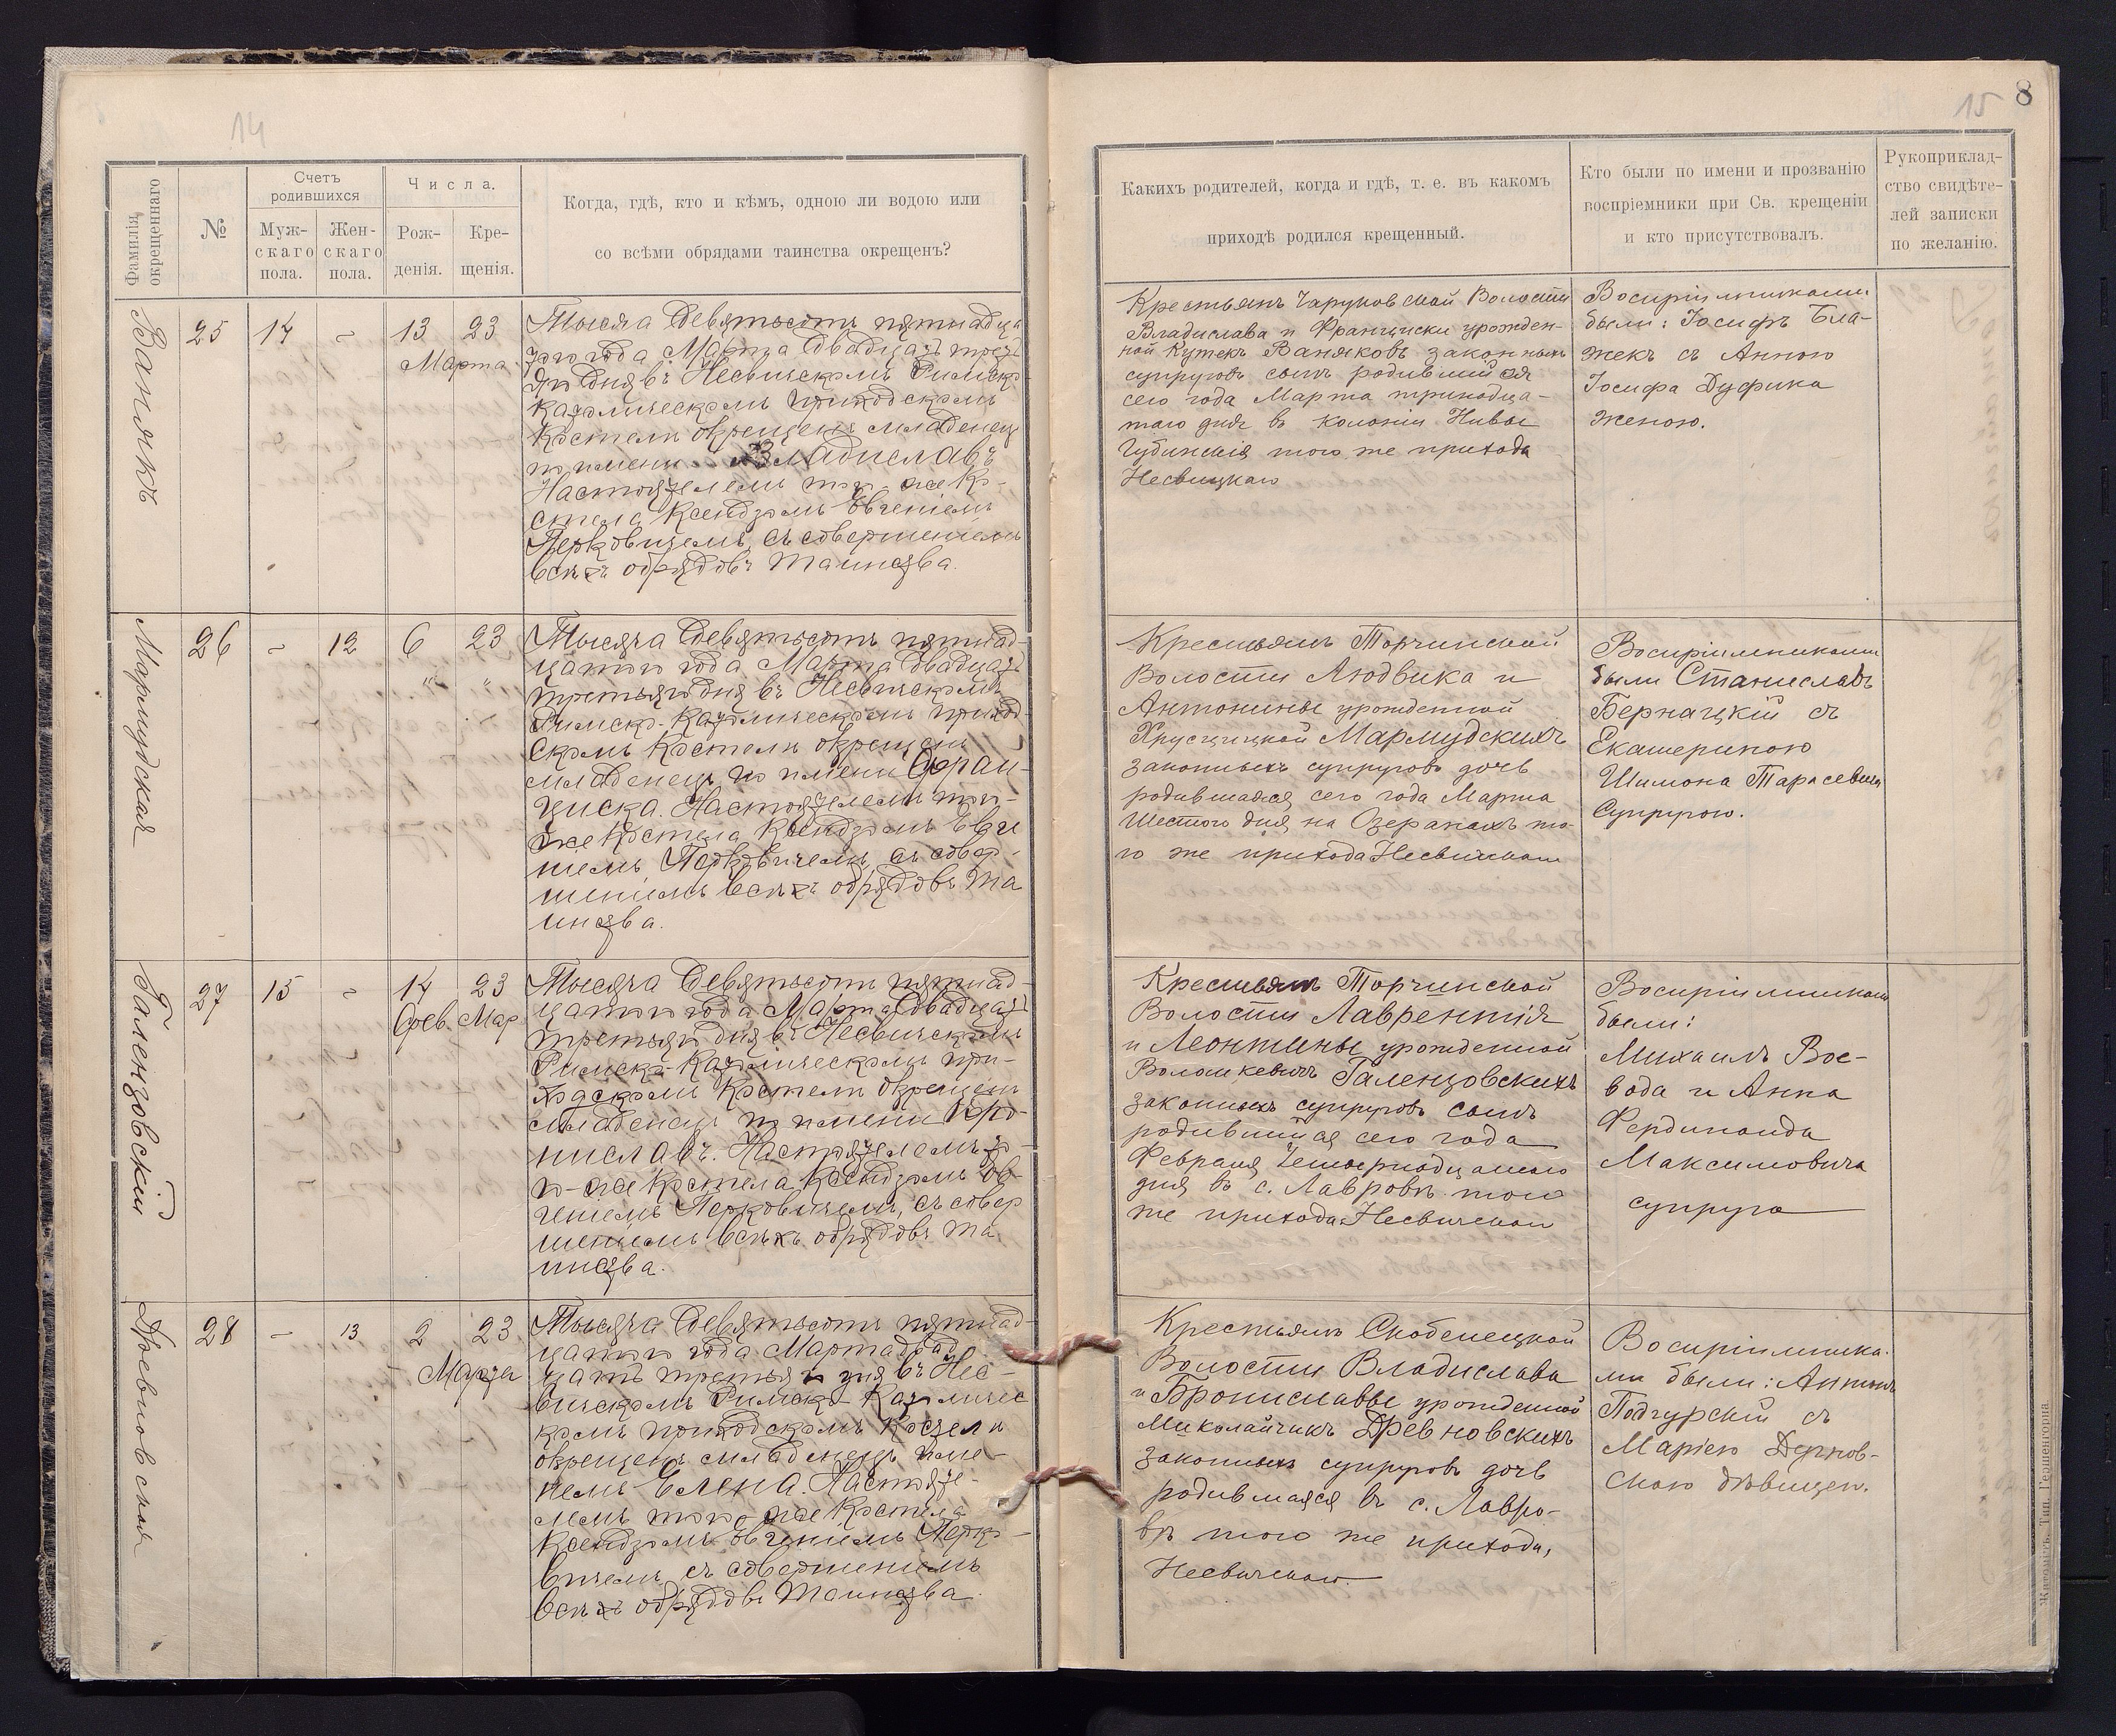 14
Фамилія окрещеннаго
№
Счетъ родившихся
Муж-
скаго
пола.
Жен-
скаго
пола.
Числа.
Рож-
денія.
Кре-
щенія.
Когда, гдѣ, кто и кѣмъ, одною ли водою или
со всѣми обрядами таинства окрещенъ?
Ванякъ
25
14
13
23
Марта
Тысяча девятьсотъ пятнадца
того года Марта двадцать треть
яго дня въ Несвичскомъ Римско-
католическомъ приходскомъ
костелѣ окрещенъ младенец
по имени Владиславъ
Настоятелемъ того-же Ко-
стела Ксендзомъ Евгеніемъ
Перковичемъ, съ совершеніемъ
всѣхъ обрядовъ Таинства.
Мармудская
26
12
6
23
" "
Тысяча девятьсотъ пятнад-
цатого года Марта двадцать
третьяго дня въ Несвичскомъ
Римско-Католическомъ приход-
скомъ Костелѣ окрещенъ
младенецъ по имени Фран-
циска. Настоятелемъ того-
же Костела Ксендзомъ Евге
ніемъ Перковичемъ, съ совер-
шеніемъ всѣхъ обрядовъ Та
инства.
Галензовскій
27
15
14
23
Фев. Мар
Тысяча девятьсотъ пятнад-
цатого года Марта двадцать
третьяго дня въ Несвичскомъ
Римско-Католическомъ при-
ходскомъ Костелѣ окрещенъ
младенецъ по имени Бро-
ниславъ. Настоятелемъ то-
го-же Костела Ксендзомъ Ев-
геніемъ Перковичемъ, съ совер
шеніемъ всѣхъ обрядовъ Та
инства.
Древновская
28
13
2
23
Марта
Тысяча девятьсотъ пятнад-
цатого года Марта двад
цать третьяго дня въ Нес-
вичскомъ Римско-Католичес
комъ приходскомъ Костелѣ
окрещенъ младенецъ име-
немъ Елена. Настояте-
лемъ того-же Костела
Ксендзомъ Евгеніемъ Перко-
вичемъ, съ совершеніемъ
всѣхъ обрядовъ Таинства.
15
8
Какихъ родителей, когда и гдѣ, т. е. въ какомъ
приходѣ родился крещенный.
Кто были по имени и прозванію
воспріемники при Св. крещеніи
и кто присутствовалъ.
Рукоприклад-
ство свидѣте-
лей записки
по желанію.
Крестьянъ Чаруковской Волости
Владислава и Франциски урожден-
ной Кутекъ Ваняковъ законныхъ
супруговъ сынъ родившийся
сего года Марта тринадца-
таго дня въ колоніи Нивы
Губинскія того же прихода
Несвицкаго
Воспріимниками
были: Іосифъ Бла-
жекъ съ Анною
Іосифа Дуфика
женою.
Крестьянъ Торчинской
Волости Людвика и
Антонины урожденной
Хрусцицкой Мармудскихъ
законныхъ супруговъ дочь
родившаяся сего года Марта
Шестого дня на Озеранахъ то-
го же прихода Несвичскаго
Воспріимниками
были Станиславъ
Бернацкій съ
Екатериною
Шимона Тарасевича
Супругою.
Крестьянъ Торчинской
Волости Лаврентія
и Леонтины урожденной
Волошкевичъ Галензовскихъ
законныхъ супруговъ сынъ
родившийся сего года
Февраля Четырнадцатаго
дня въ с. Лавровѣ того
же прихода Несвичскаго
Воспріимниками
были:
Михаилъ Вое-
вода и Анна
Фердинанда
Максимовича
супруга
Крестьянъ Скобелецкой
Волости Владислава
и Брониславы урожденной
Миколайчикъ Древновскихъ
законныхъ супруговъ дочь
родившаяся въ с. Лавро-
вѣ того же прихода,
Несвичскаго.
Воспріимника-
ми были: Антонъ
Подгурскій съ
Маріею Древнов-
скою дѣвицею.
Житоміръ. Тип. Гершенгорна.